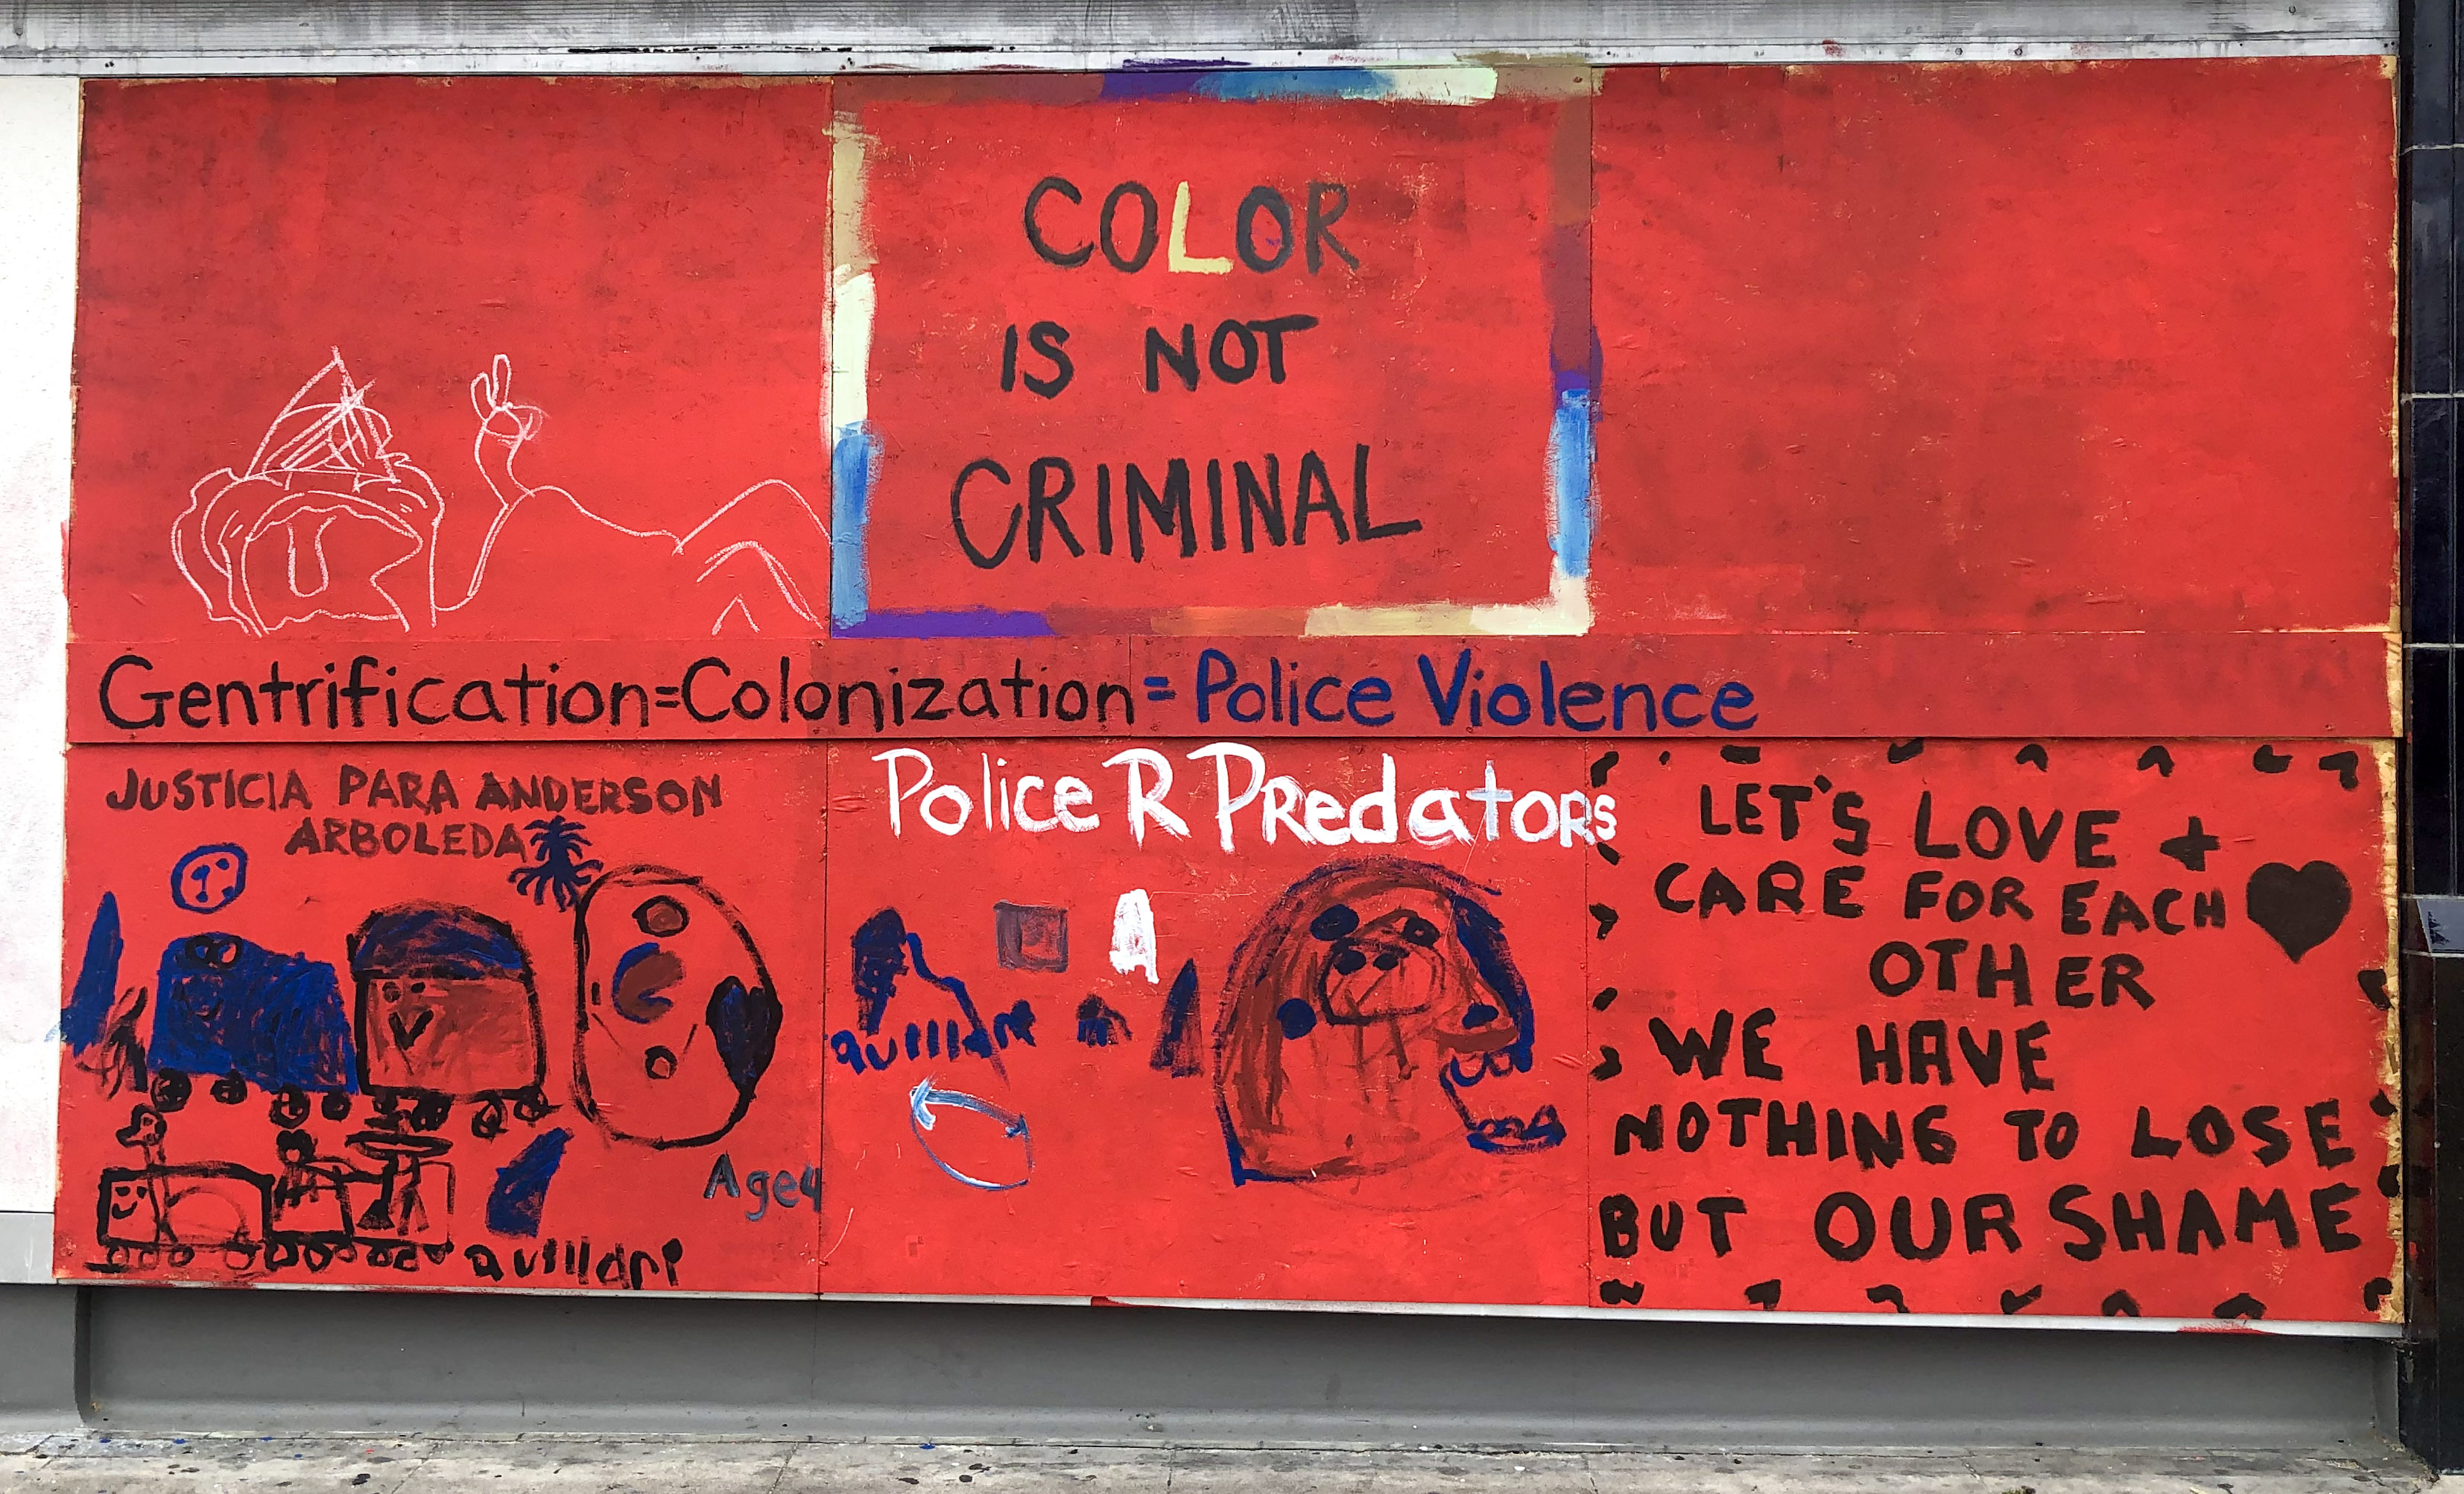 COLOR
IS NOT
CRIMINAL
Gentrification=Colonization=Police Violence
JUSTICIA PARA ANDERSON
ARBOLEDA
Age4
Police R PRedatoRs
A
LET'S LOVE +
CARE FOR EACH
OTHER
WE HAVE
NOTHING TO LOSE
BUT OUR SHAME